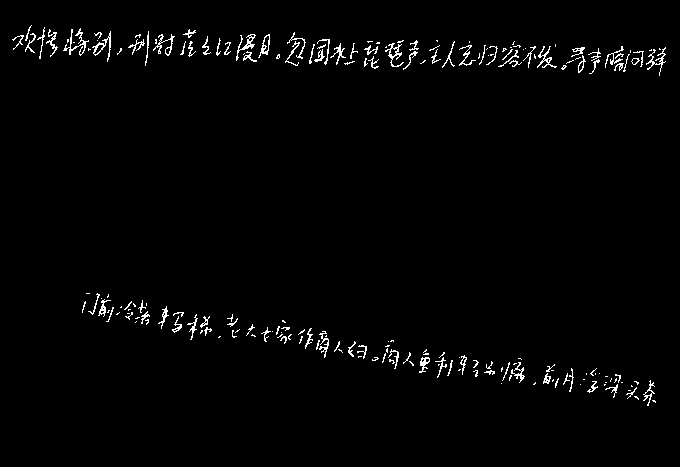 欢惨将别，别时茫茫江浸月。忽闻水上琵琶声，主人忘归客不发。寻声暗问弹
门前冷落车马稀，老大嫁作商人妇。商人重利轻别离，前月浮梁买茶